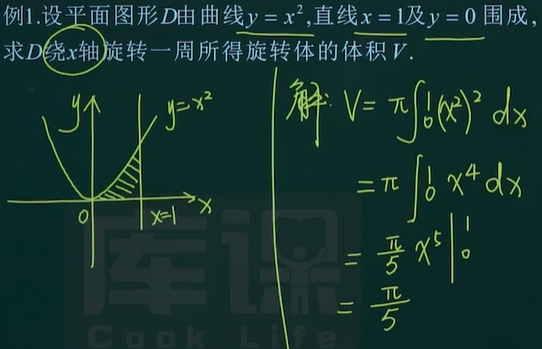 例1.设平面图形D由曲线y = x²,直线x = 1及y = 0 围成,
求D绕x轴旋转一周所得旋转体的体积V.
y
y=x²
0
x=1
x
解: V = π∫₀¹(x²)² dx
= π∫₀¹ x⁴ dx
= π/5 x⁵|₀¹
= π/5
库课
Cook Life